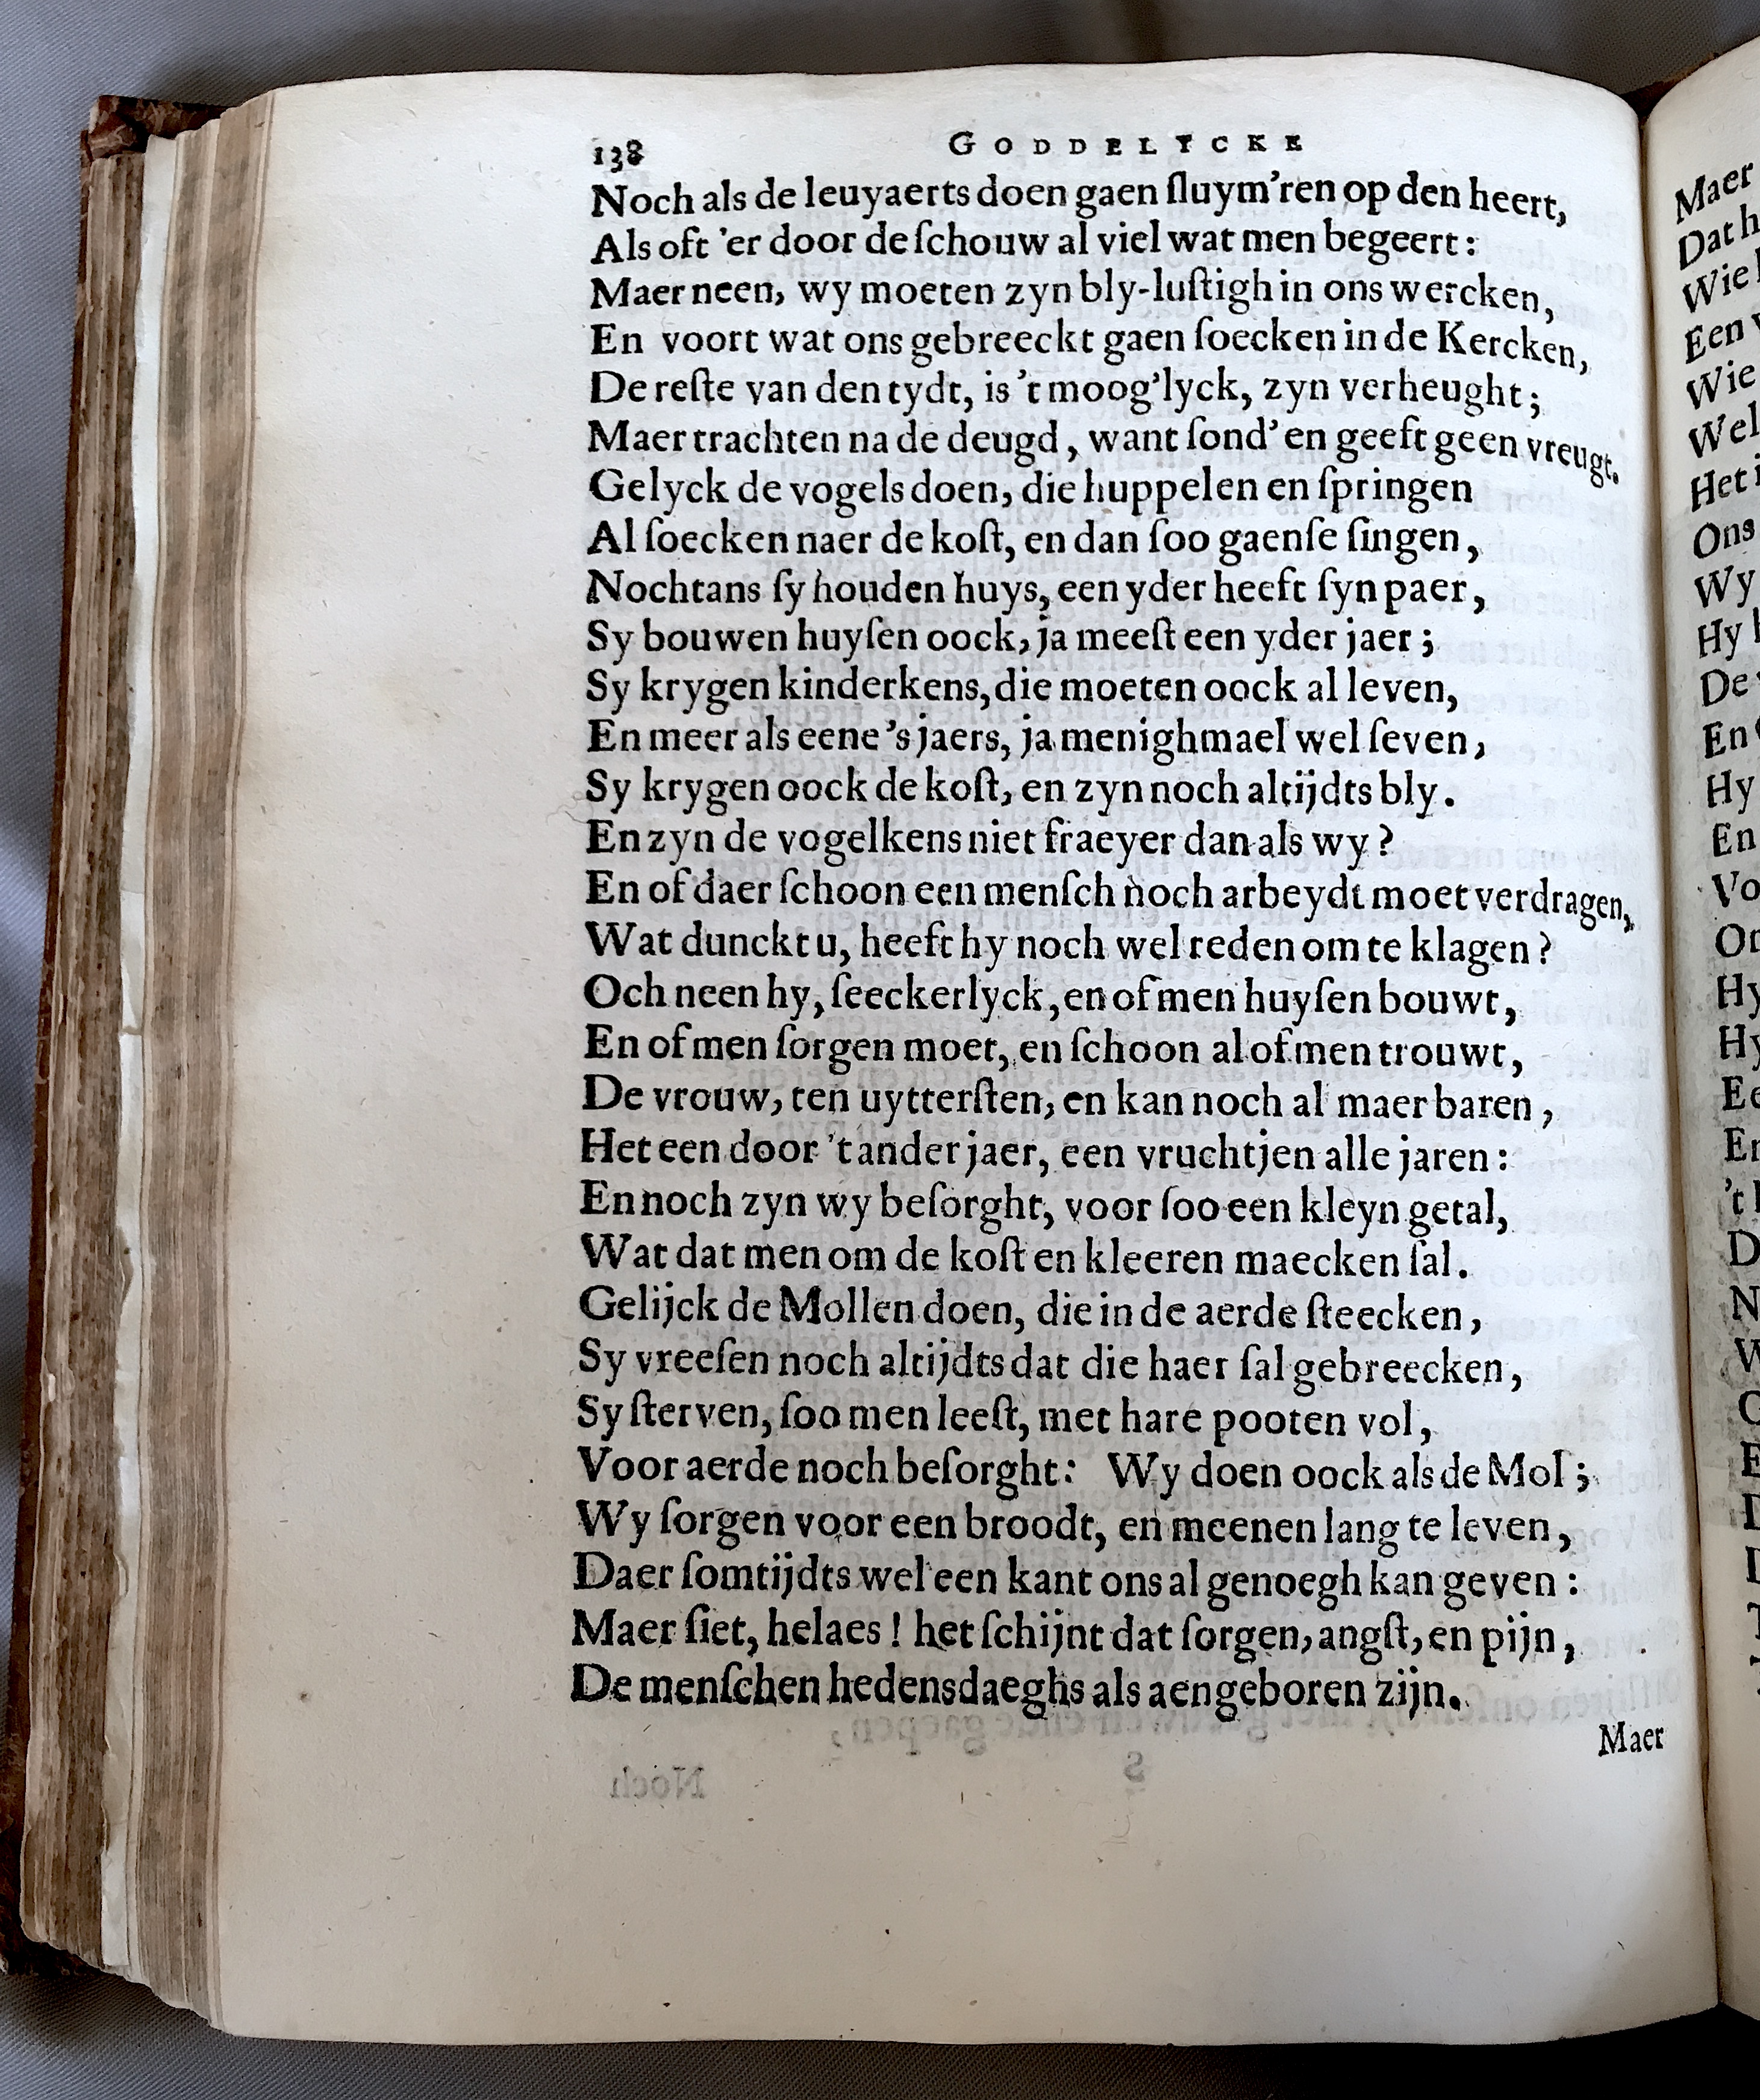 138 GODDELYCKE
Noch als de leuyaerts doen gaen ſluym'ren op den heert,
Als oft 'er door de ſchouw al viel wat men begeert:
Maer neen, wy moeten zyn bly-luſtigh in ons wercken,
En voort wat ons gebreeckt gaen ſoecken in de Kercken,
De reſte van den tydt, is 't moog'lyck, zyn verheught;
Maer trachten na de deugd, want ſond' en geeft geen vreugt.
Gelyck de vogels doen, die huppelen en ſpringen
Al ſoecken naer de koſt, en dan ſoo gaenſe ſingen,
Nochtans ſy houden huys, een yder heeft ſyn paer,
Sy bouwen huyſen oock, ja meeſt een yder jaer;
Sy krygen kinderkens, die moeten oock al leven,
En meer als eene 's jaers, ja menighmael wel ſeven,
Sy krygen oock de koſt, en zyn noch altijdts bly.
En zyn de vogelkens niet fraeyer dan als wy?
En of daer ſchoon een menſch noch arbeydt moet verdragen,
Wat dunckt u, heeft hy noch wel reden om te klagen?
Och neen hy, ſeeckerlyck, en of men huyſen bouwt,
En of men ſorgen moet, en ſchoon al of men trouwt,
De vrouw, ten uytterſten, en kan noch al maer baren,
Het een door 't ander jaer, een vruchtjen alle jaren:
En noch zyn wy beſorght, voor ſoo een kleyn getal,
Wat dat men om de koſt en kleeren maecken ſal.
Gelijck de Mollen doen, die in de aerde ſteecken,
Sy vreeſen noch altijdts dat die haer ſal gebreecken,
Sy ſterven, ſoo men leeſt, met hare pooten vol,
Voor aerde noch beſorght: Wy doen oock als de Mol;
Wy ſorgen voor een broodt, en meenen lang te leven,
Daer ſomtijdts wel een kant ons al genoegh kan geven:
Maer ſiet, helaes! het ſchijnt dat ſorgen, angſt, en pijn,
De menſchen hedensdaeghs als aengeboren zijn.
Maer
Maer
Dat h
Wie
Een
Wie
Wel
Het i
Ons
Wy
Hy
De
En
Hy
En
Vo
Hy
Hy